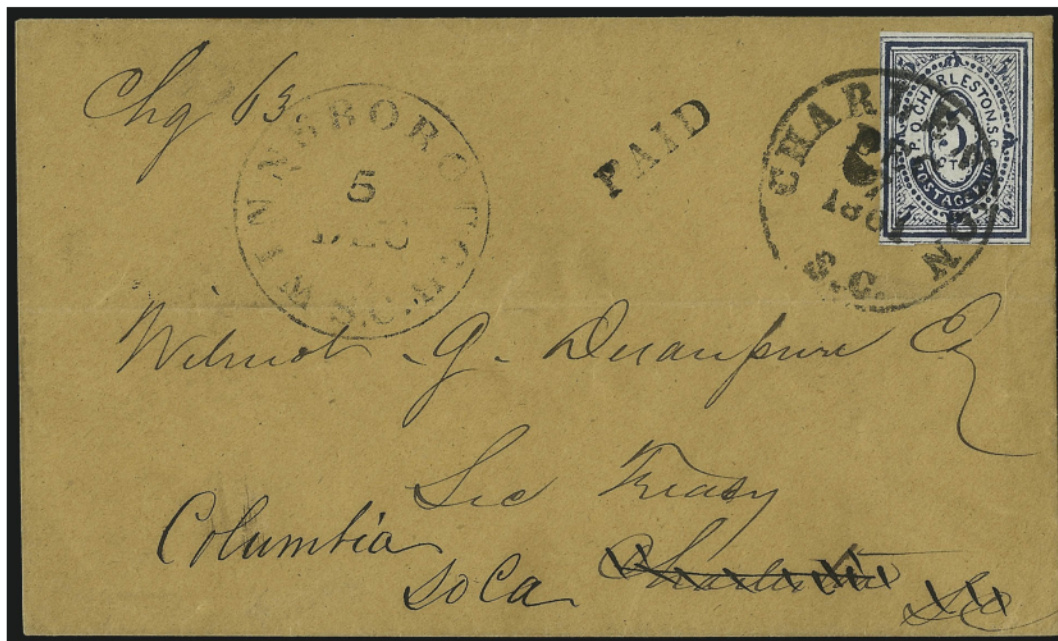 Chg 63.
WINNSBORO
5
DEC
S.C.
PAID
CHARLESTON
1861
S.C.
5 5
P.O. CHARLESTON, S.C.
5
CTS
POSTAGE PAID
5 5
Wilmot G. Desaussure Esq
Sec Treasy
Columbia
So Ca Charleston